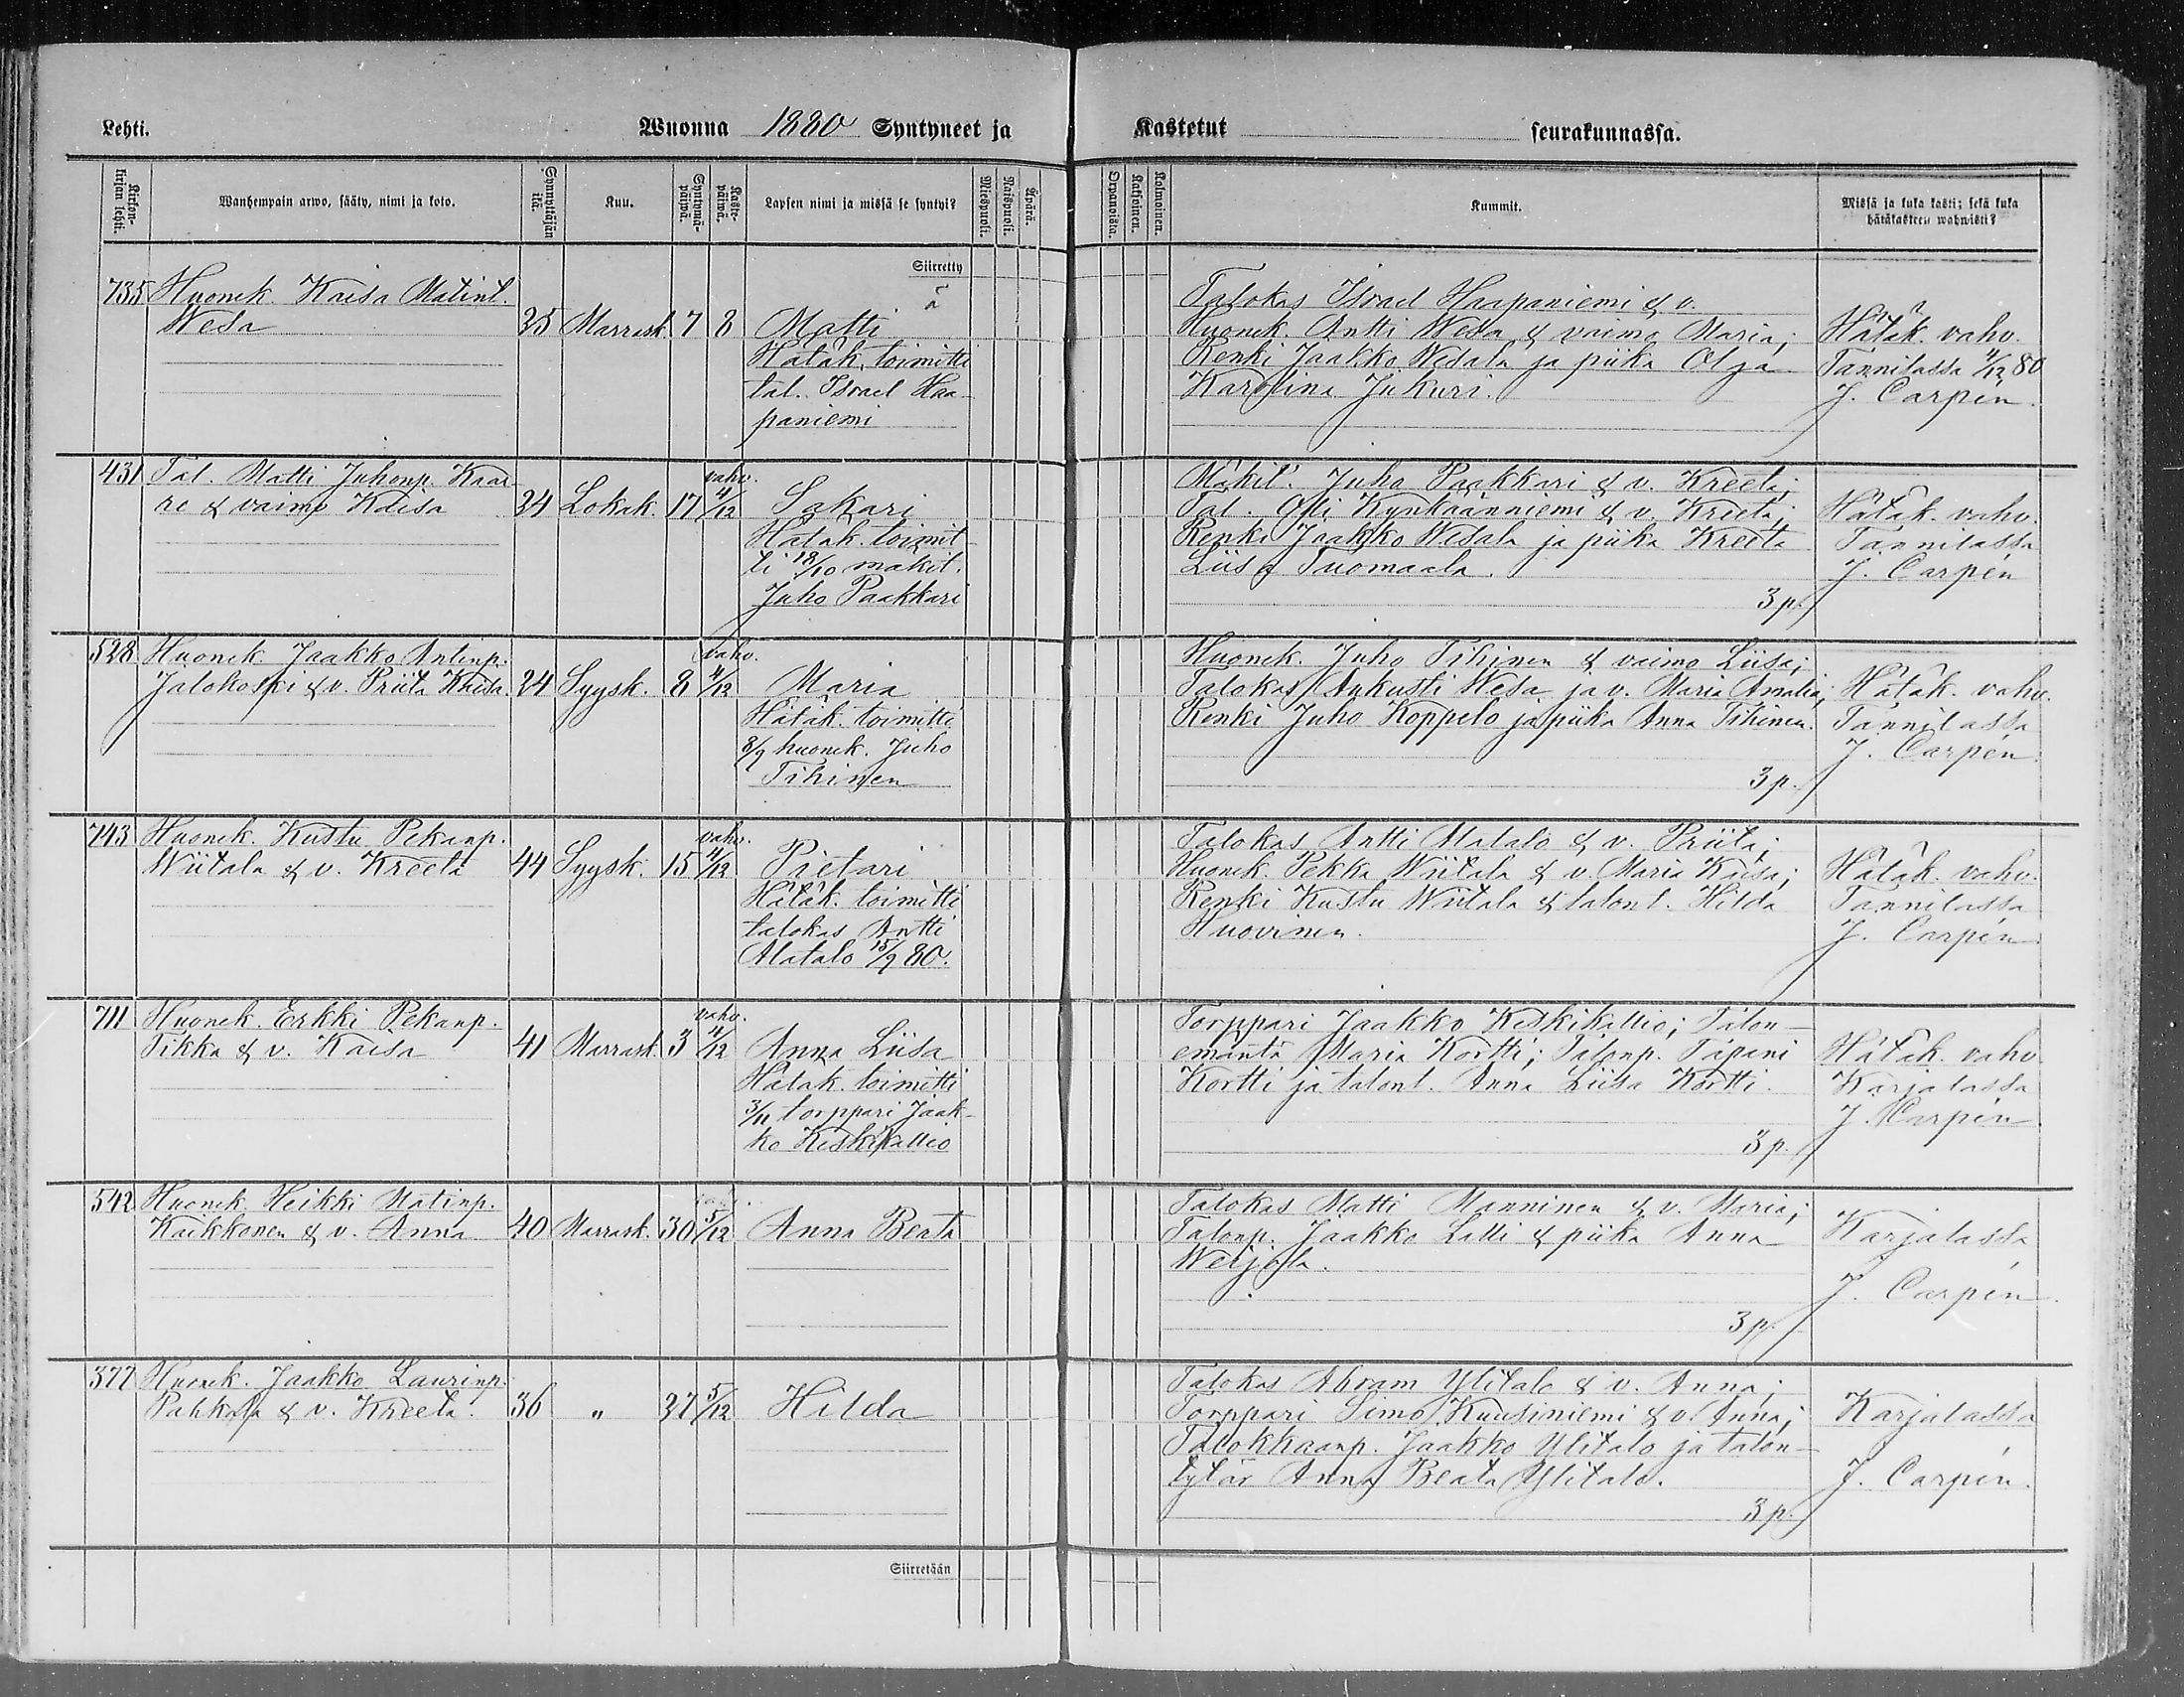 Lehti.
Wuonna 1880 Syntyneet ja
Kastetut seurakunnassa.
Kirkon-
kirjan lehti.
Wanhempain arwo, sääty, nimi ja koto.
Synnyttäjän
ikä.
Kuu.
Syntymä-
päiwä.
Kaste-
päiwä.
Lapsen nimi ja missä se syntyi?
Miespuoli.
Naispuoli.
Äpärä.
Orpanoista.
Kaksoinen.
Kolmoinen.
Kummit.
Missä ja kuka kasti; sekä kuka
hätäkasteen wahwisti?
Siirretty
735 Huonek. Kaisa Matint.
Wesa 25 Marrask. 7 8 Matti
Hätäk. toimitti
tal. Israel Haa-
paniemi
Talokas Israel Haapaniemi & v.
Huonek. Antti Wesa & vaimo Maria;
Renki Jaakko Wesala ja piika Olga
Karolina Jukuri.
Hätäk. vahv.
Tannilassa 4/12 80
J. Carpén
431 Tal. Matti Juhonp. Kaa-
re & vaimo Kaisa 34 Lokak. 17 vahv.
4/12 Sakari
Hätäk. toimit-
ti 18/10 mäkit.
Juho Paakkari
Mäkit. Juho Paakkari & v. Kreeta;
Tal. Olli Kynkäänniemi & v. Kreeta;
Renki Jaakko Wesala ja piika Kreeta
Liisa Tuomaala.
3 p.
Hätäk. vahv.
Tannilassa
J. Carpén
528 Huonek. Jaakko Antinp.
Jalokoski & v. Priita Kaisa. 24 Syysk. 8 vahv.
4/12 Maria
Hätäk. toimitti
8/9 huonek. Juho
Tihinen
Huonek. Juho Tihinen & vaimo Liisa;
Talokas Aukusti Wesa ja v. Maria Amalia;
Renki Juho Koppelo ja piika Anna Tihinen.
3 p.
Hätäk. vahv.
Tannilassa
J. Carpén
743 Huonek. Kustu Pekanp.
Wiitala & v. Kreeta 44 Syysk. 15 vahv.
4/12 Pietari
Hätäk. toimitti
talokas Antti
Matalo 15/9 80.
Talokas Antti Matalo & v. Priita;
Huonek. Pekka Wiitala & v. Maria Kaisa;
Renki Kustu Wiitala & talont. Hilda
Huovinen.
Hätäk. vahv.
Tannilassa
J. Carpén
711 Huonek. Erkki Pekanp.
Tikka & v. Kaisa 41 Marrask. 3 vahv.
4/12 Anna Liisa
Hätäk. toimitti
3/11 torppari Jaak-
ko Keskikallio
Torppari Jaakko Keskikallio; Talon-
emäntä Maria Kortti; Talonp. Tapani
Kortti ja talont. Anna Liisa Kortti.
3 p.
Hätäk. vahv.
Karjalassa
J. Carpén
542 Huonek. Heikki Matinp.
Kaikkonen & v. Anna 40 Marrask. 30 5/12 Anna Beata
Talokas Matti Manninen & v. Maria;
Talonp. Jaakko Lalli & piika Anna
Weijola.
3 p.
Karjalassa
J. Carpén
377 Huonek. Jaakko Laurinp.
Pahkala & v. Kreeta. 36 " 27 5/12 Hilda
Talokas Abram Ylitalo & v. Anna;
Torppari Simo Kuusiniemi & v. Anna;
Talokkaanp. Jaakko Ylitalo ja talon-
tytär Anna Beata Ylitalo.
3 p.
Karjalassa
J. Carpén.
Siirretään